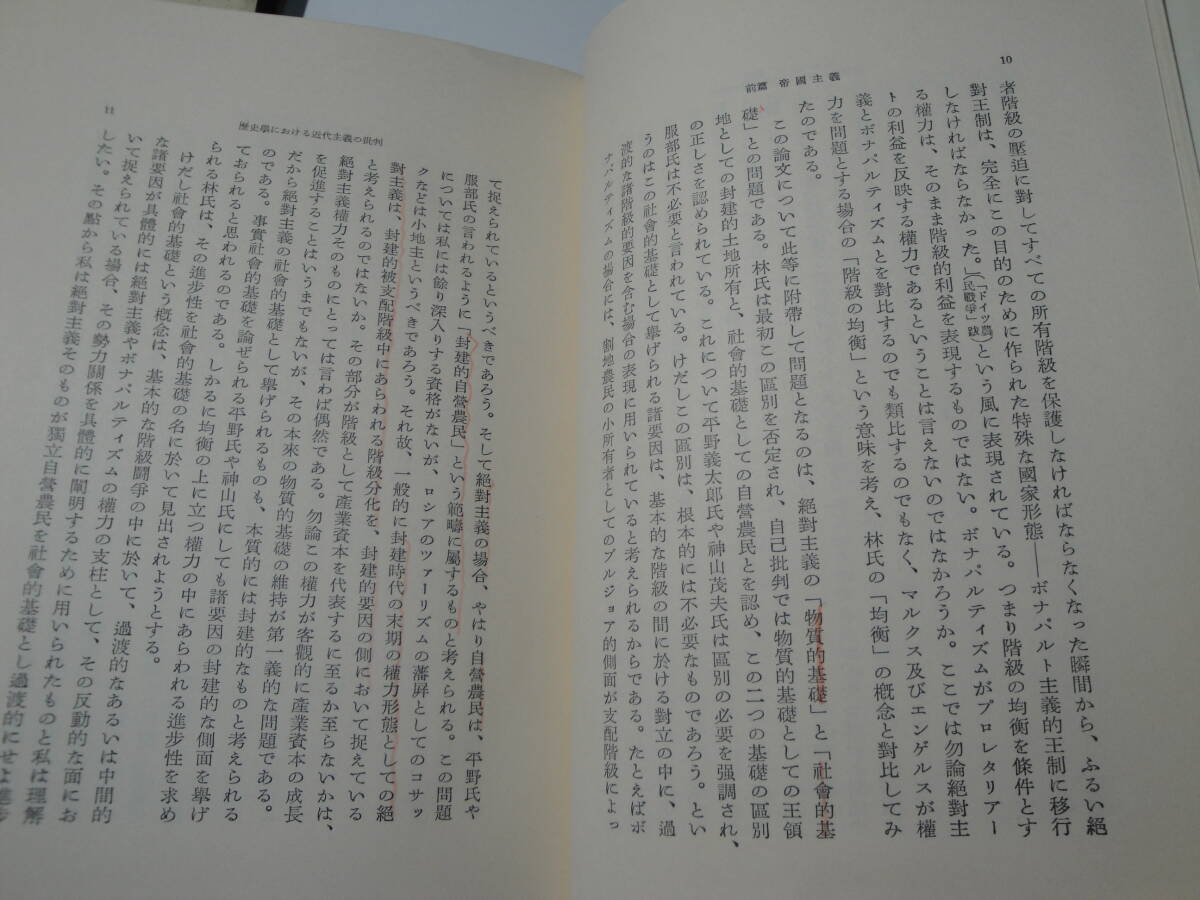 10
前篇 帝國主義
者階級の壓迫に對してすべての所有階級を保護しなければならなくなった瞬間から、ふるい絕
對王制は、完全にこの目的のために作られた特殊な國家形態――ボナパルト主義的王制に移行
しなければならなかった。」(「ドイツ農民戰爭」跋)という風に表現されている。つまり階級の均衡を條件とす
る權力は、そのまま階級的利益を表現するものではない。ボナパルティズムがプロレタリアー
トの利益を反映する權力であるということは言えないのではなかろうか。ここでは勿論絕對主
義とボナパルティズムとを對比するのでも類比するのでもなく、マルクス及びエンゲルスが權
力を問題とする場合の「階級の均衡」という意味を考え、林氏の「均衡」の槪念と對比してみ
たのである。
この論文について此等に附帶して問題となるのは、絕對主義の「物質的基礎」と「社會的基
礎」との問題である。林氏は最初この區別を否定され、自己批判では物質的基礎としての王領
地としての封建的土地所有と、社會的基礎としての自營農民とを認め、この二つの基礎の區別
の正しさを認められている。これについて平野義太郎氏や神山茂夫氏は區別の必要を强調され、
服部氏は不必要と言われている。けだしこの區別は、根本的には不必要なものであろう。とい
うのはこの社會的基礎として擧げられる諸要因は、基本的な階級の間に於ける對立の中に、過
渡的な諸階級的要因を含む場合の表現に用いられていると考えられるからである。たとえばボ
ナパルティズムの場合には、割地農民の小所有者としてのブルジョア的側面が支配階級によっ
歷史學における近代主義の批判
11
て捉えられているというべきであろう。そして絕對主義の場合、やはり自營農民は、平野氏や
服部氏の言われるように「封建的自營農民」という範疇に屬するものと考えられる。この問題
については私には餘り深入りする資格がないが、ロシアのツァーリズムの藩屛としてのコサッ
クなどは小地主というべきであろう。それ故、一般的に封建時代の末期の權力形態としての絕
對主義は、封建的被支配階級中にあらわれる階級分化を、封建的要因の側において捉えている
と考えられるのではないか。その部分が階級として產業資本を代表するに至るか至らないかは、
絕對主義權力そのものにとっては言わば偶然である。勿論この權力が客觀的に產業資本の成長
を促進することはいうまでもないが、その本來の物質的基礎の維持が第一義的な問題である。
だから絕對主義の社會的基礎として擧げられるものも、本質的には封建的なものと考えられる
のである。事實社會的基礎を論ぜられる平野氏や神山氏にしても諸要因の封建的な側面を擧げ
ておられると思われるのである。しかるに均衡の上に立つ權力の中にあらわれる進步性を求め
られる林氏は、その進步性を社會的基礎の名に於いて見出されようとする。
けだし社會的基礎という槪念は、基本的な階級鬪爭の中に於いて、過渡的なあるいは中間的
な諸要因が具體的には絕對主義やボナパルティズムの權力の支柱として、その反動的な面にお
いて捉えられている場合、その勢力關係を具體的に闡明するために用いられたものと私は理解
したい。その點から私は絕對主義そのものが獨立自營農民を社會的基礎とし過渡的にせよ進步